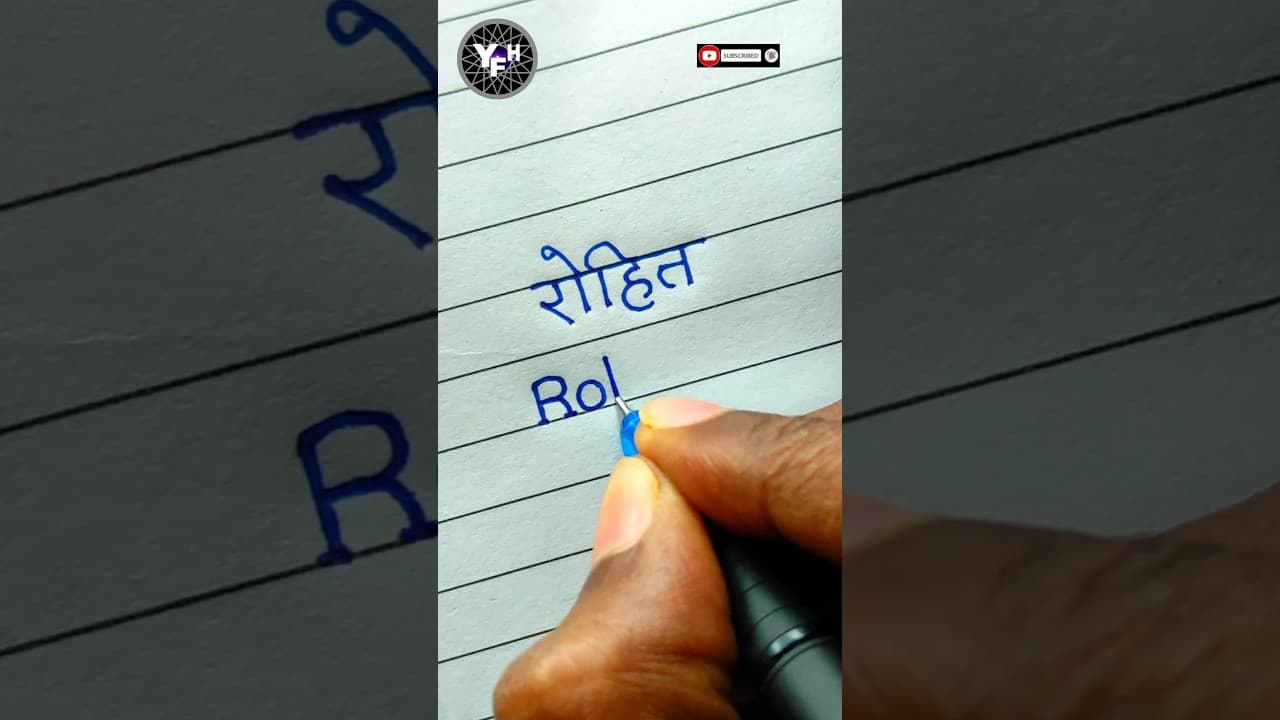 YFH
SUBSCRIBED
रोहित
Rol